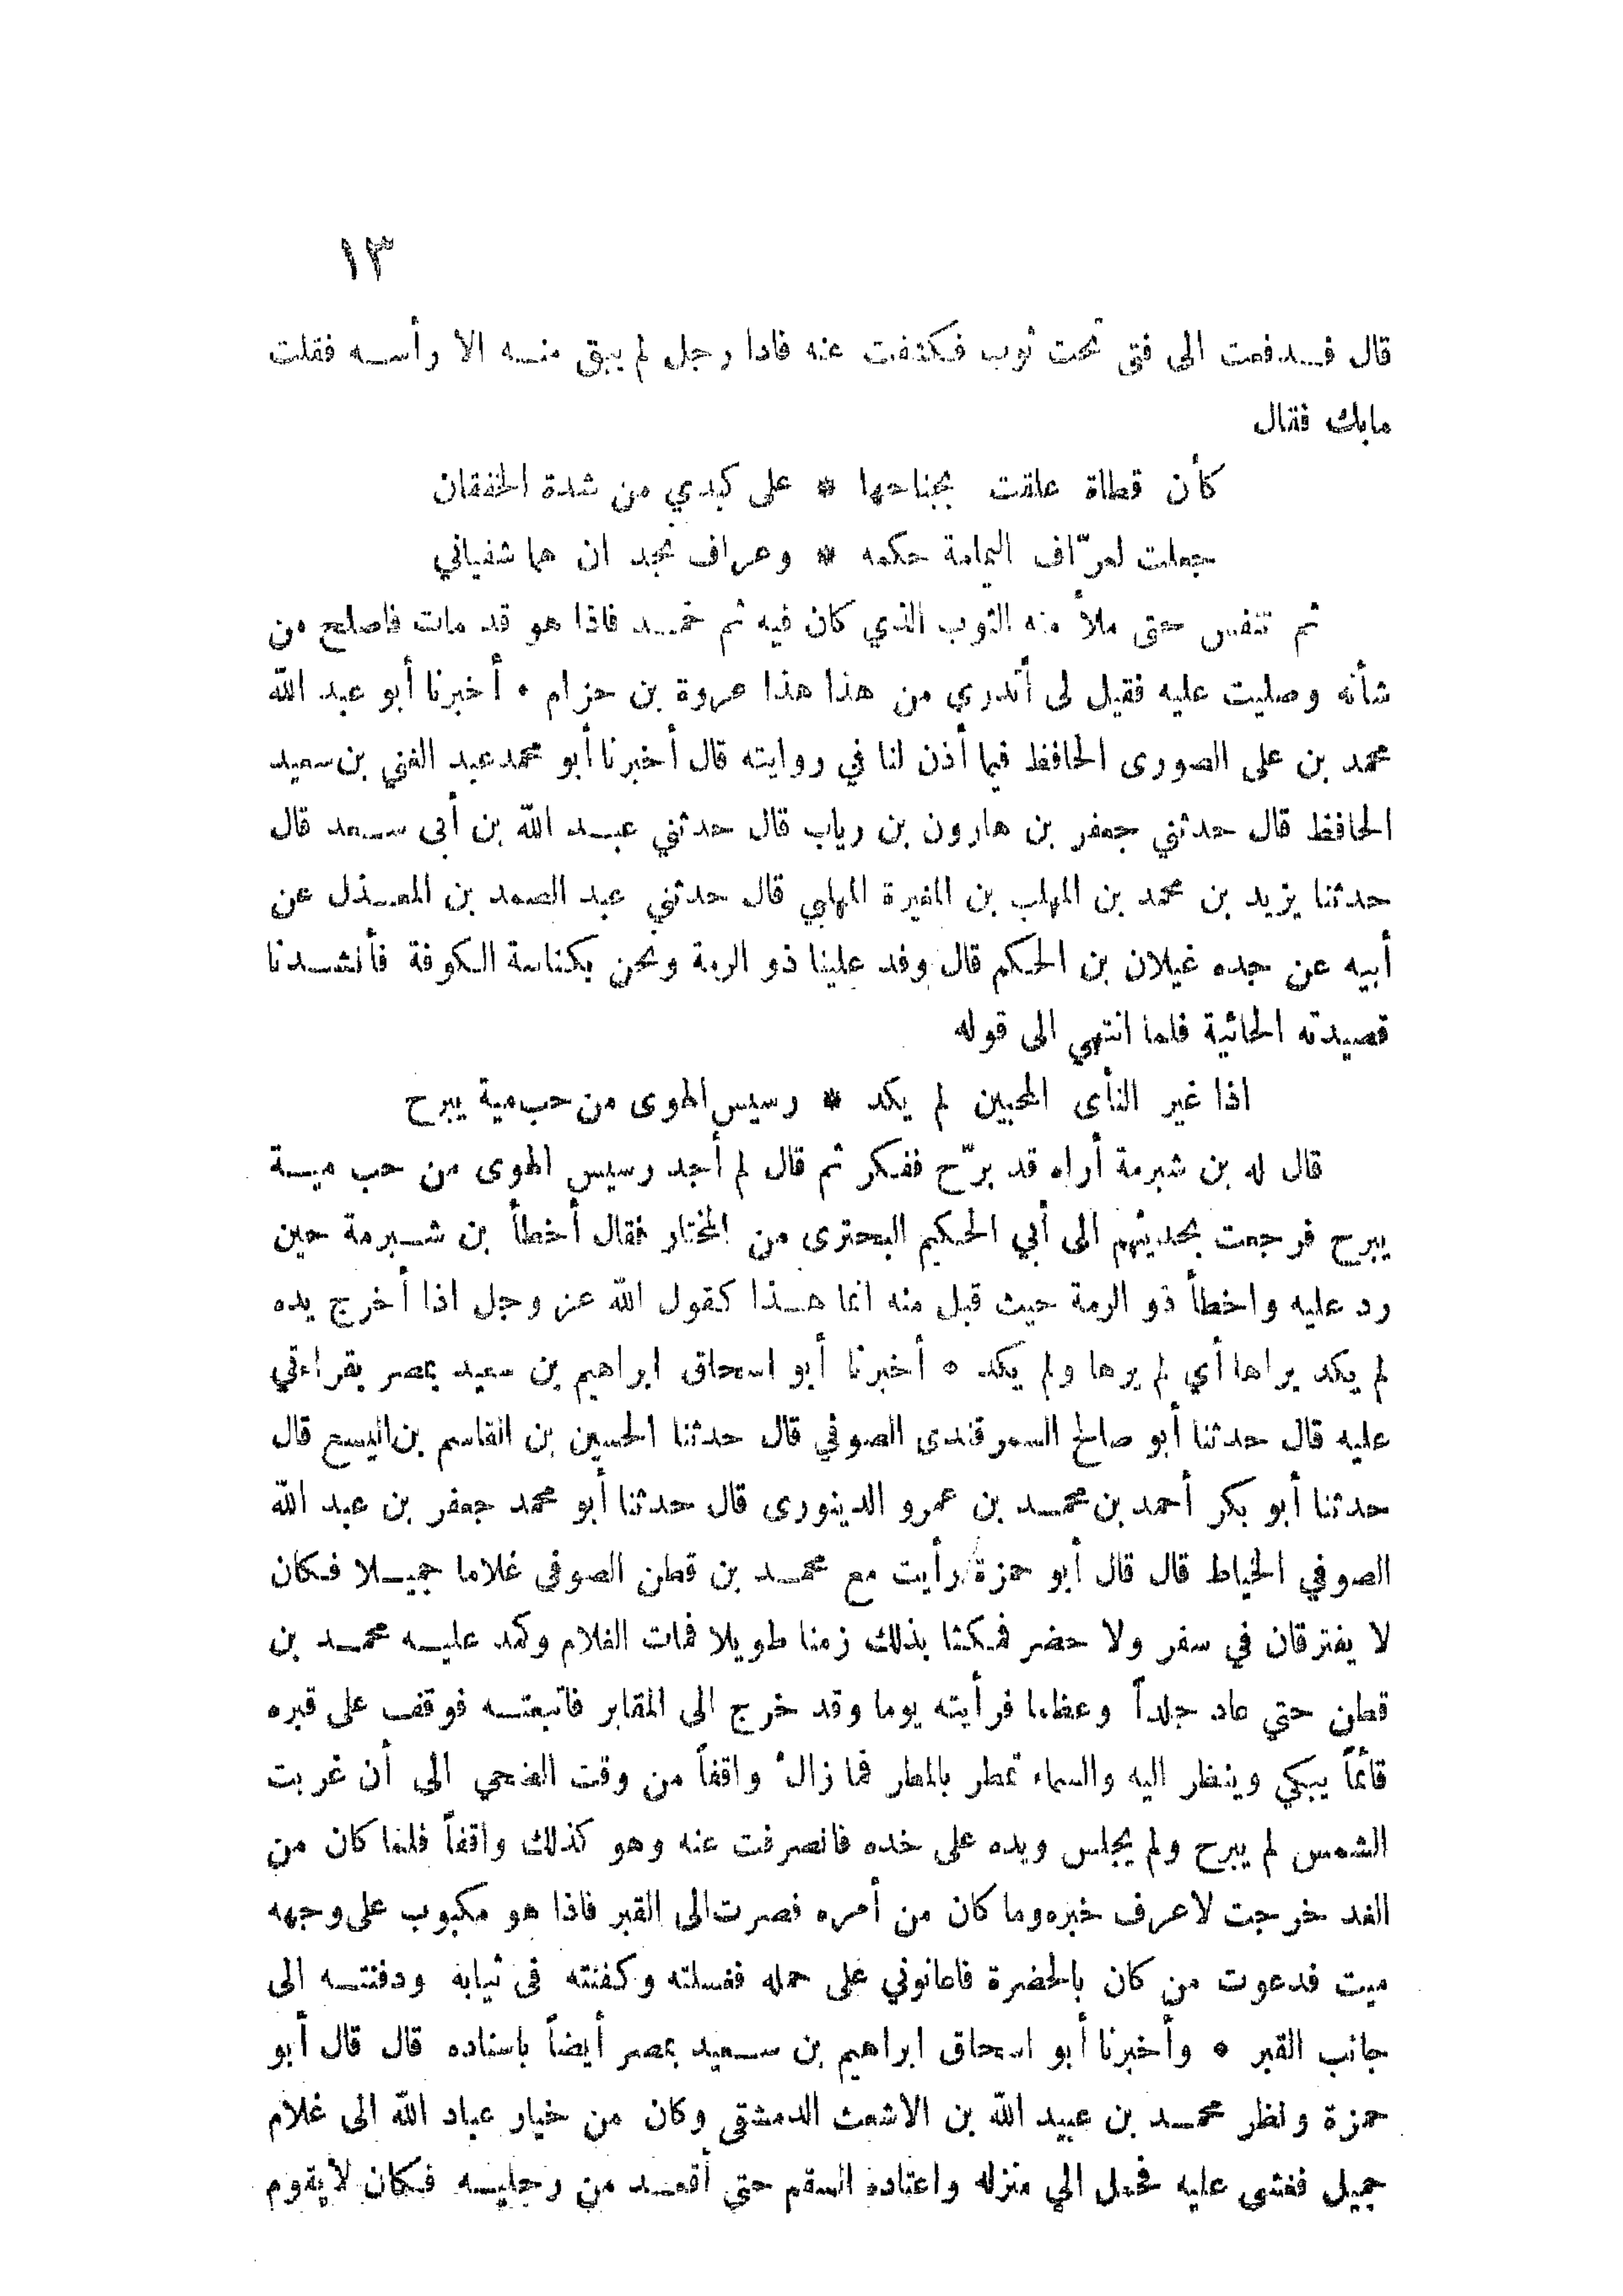 ١٣
قال فدفعت الى فتى تحت ثوب فكشفت عنه فاذا رجل لم يبق منه الا رأسه فقلت
مابك فقال
كأن قطاة علقت بجناحها * على كبدي من شدة الخفقان
جعلت لعرّاف اليمامة حكمه * وعراف نجد ان هما شفياني
ثم تنفس حتى ملأ منه الثوب الذي كان فيه ثم خمد فاذا هو قد مات فاصلح من
شأنه وصليت عليه فقيل لى أتدري من هذا هذا عروة بن حزام • أخبرنا أبو عبد الله
محمد بن على الصورى الحافظ فيما أذن لنا في روايته قال أخبرنا أبو محمد عبد الغني بن سعيد
الحافظ قال حدثني جعفر بن هارون بن رياب قال حدثني عبد الله بن أبى سعد قال
حدثنا يزيد بن محمد بن المهلب بن المغيرة المهلبي قال حدثني عبد الصمد بن المعذل عن
أبيه عن جده غيلان بن الحكم قال وفد علينا ذو الرمة ونحن بكناسة الكوفة فأنشدنا
قصيدته الحائية فلما انتهي الى قوله
اذا غير النأى المحبين لم يكد * رسيس الهوى من حب مية يبرح
قال له بن شبرمة أراه قد برّح ففكر ثم قال لم أجد رسيس الهوى من حب مية
يبرح فرجعت بحديثهم الى أبي الحكيم البحترى من المختار فقال أخطأ بن شبرمة حين
رد عليه واخطأ ذو الرمة حيث قبل منه انما هذا كقول الله عز وجل اذا أخرج يده
لم يكد يراها أي لم يرها ولم يكد • أخبرنا أبو اسحاق ابراهيم بن سعيد بمصر بقراءتي
عليه قال حدثنا أبو صالح السمرقندى الصوفي قال حدثنا الحسين بن القاسم بن اليسع قال
حدثنا أبو بكر أحمد بن محمد بن عمرو الدينورى قال حدثنا أبو محمد جعفر بن عبد الله
الصوفي الخياط قال قال أبو حمزة رأيت مع محمد بن قطن الصوفى غلاما جميلا فكان
لا يفترقان في سفر ولا حضر فمكثا بذلك زمنا طويلا فمات الغلام وكمد عليه محمد بن
قطن حتي عاد جلداً وعظاما فرأيته يوما وقد خرج الى المقابر فاتبعته فوقف على قبره
قائماً يبكي وينظر اليه والسماء تمطر بالمطر فما زال واقفاً من وقت الضحي الى أن غربت
الشمس لم يبرح ولم يجلس ويده على خده فانصرفت عنه وهو كذلك واقفاً فلما كان من
الغد خرجت لاعرف خبره وما كان من أمره فصرت الى القبر فاذا هو مكبوب على وجهه
ميت فدعوت من كان بالحضرة فاعانوني على حمله فغسلته وكفنته فى ثيابه ودفنته الى
جانب القبر • وأخبرنا أبو اسحاق ابراهيم بن سعيد بمصر أيضاً باسناده قال قال أبو
حمزة ونظر محمد بن عبيد الله بن الاشعث الدمشقى وكان من خيار عباد الله الى غلام
جميل فغشى عليه فحمل الي منزله واعتاده السقم حتي أقعد من رجليه فكان لا يقوم